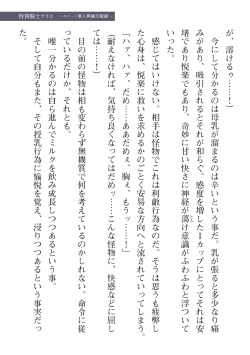 特務騎士クリス　～エリート軍人異種交配録～
が、溶けるぅ……！）
　今にして分かるのは母乳が溜まるのは辛いという事だ。乳が張ると多少なり痛
みがあり、吸引されるとそれが和らぐ。感度を増したＩカップにとってそれは安
堵であり悦楽でもあり、奇妙に甘い快さに神経が蕩け意識がふわふわと浮ついて
た。
　感じてはいけない。相手は怪物でこれは利敵行為なのだ。そうは思うも疲弊し
た心身は、悦楽に救いを求めるかのごとく安易な方向へと流されていってしまう。
「ハァ、ハァ、だめ……ああだめぇ、胸ぇ、もうッ……！」
（耐えなければ、気持ち良くなってはだめ……こんな怪物に、快感などに屈し
ては……！）
　目の前の怪物は相も変わらず無機質で何を考えているのかしれない。命令に従
っているだけか、それとも。
　唯一分かるのは自ら進んでミルクを飲み成長しつつあるという事。
　そして自分もまた、その授乳行為に愉悦を覚え、浸りつつあるという事実だっ
た。